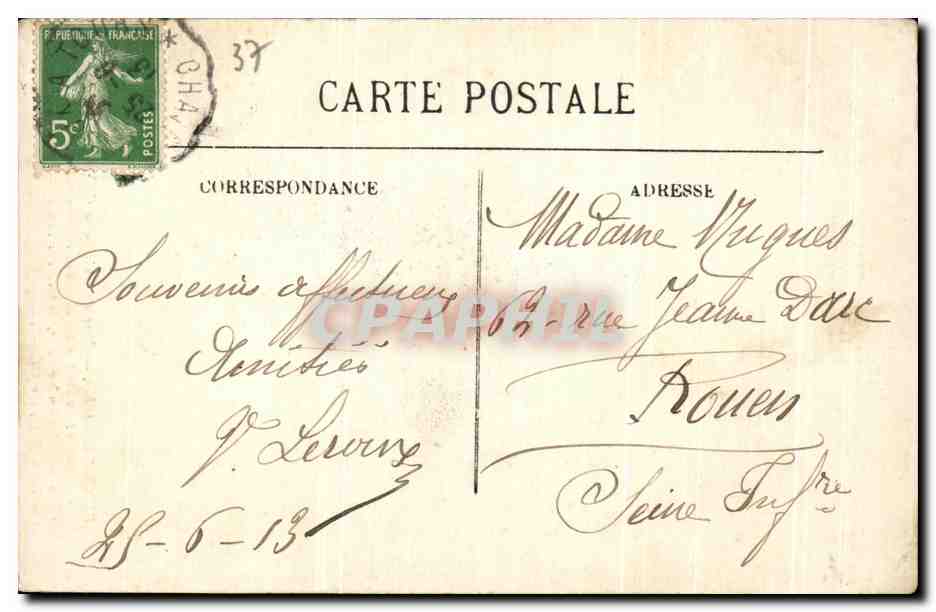 RÉPUBLIQUE FRANÇAISE
5c
POSTES
* CHA
37
CARTE POSTALE
CORRESPONDANCE
ADRESSE
Souvenirs affectueux
Amitiés
V.
25-6-13
Madame Hugues
62 - rue Jeanne Darc
Rouen
Seine Infre
CPAPHIL